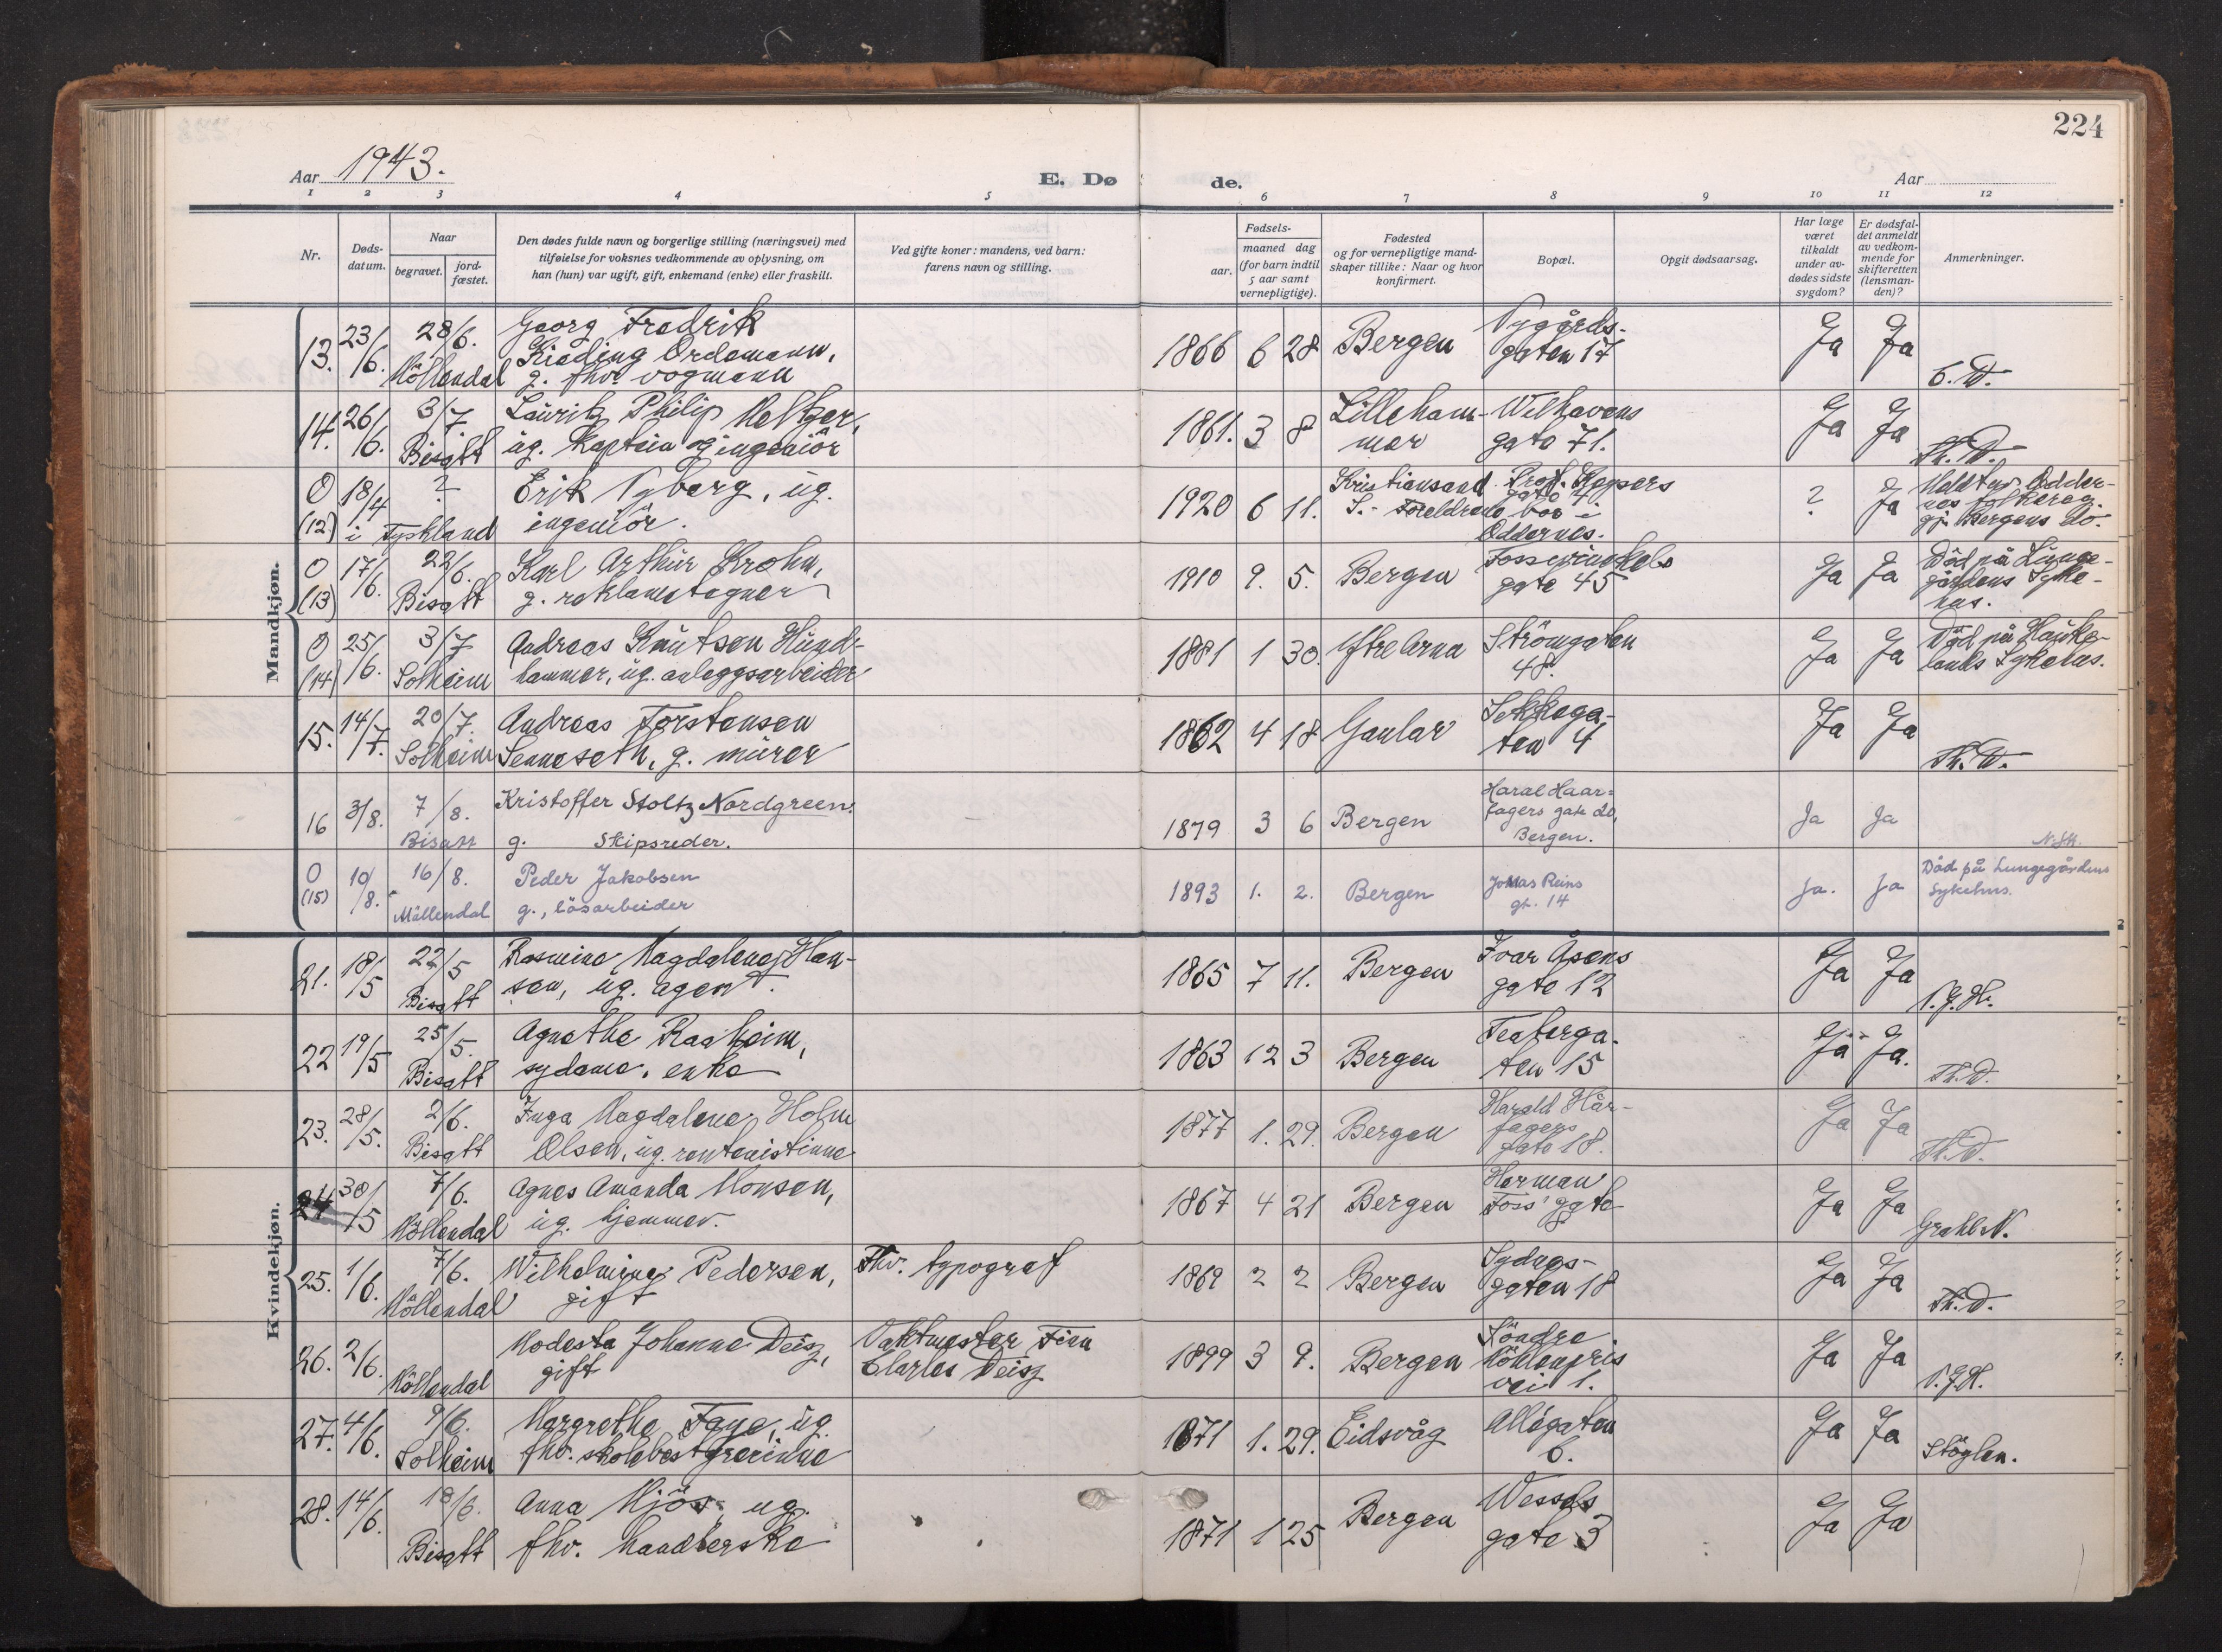 224
Aar 1943.
E. Dø
de.
Aar
1 2 3 4 5 6 7 8 9 10 11 12
Nr.
Døds-
datum.
Naar
begravet.
jord-
fæstet.
Den dødes fulde navn og borgerlige stilling (næringsvei) med
tilføielse for voksnes vedkommende av oplysning, om
han (hun) var ugift, gift, enkemand (enke) eller fraskilt.
Ved gifte koner: mandens, ved barn:
farens navn og stilling.
Fødsels-
aar.
maaned dag
(for barn indtil
5 aar samt
vernepligtige).
Fødested
og for vernepligtige mand-
skaper tillike: Naar og hvor
konfirmert.
Bopæl.
Opgit dødsaarsag.
Har læge
været
tilkaldt
under av-
dødes sidste
sygdom?
Er dødsfal-
det anmeldt
av vedkom-
mende for
skifteretten
(lensman-
den)?
Anmerkninger.
Mandkjøn.
13. 23/6. 28/6. Georg Fredrik 1866 6 28 Bergen Nygårds- Ja Ja
Möllendal Kieding Ordemann, gaten 17
g. fhv. vognmann
14. 26/6. 3/7 Lauritz Philip Meltzer, 1861. 3 8 Lilleham- Welhavens Ja Ja Th. D.
Bisatt ug. Kaptein og ingeniör mer gate 71.
0 18/4 ? Erik Nyborg, ug. 1920 6 11. Kristiansand Prof. Keysers ? Ja
(12) i Tyskland ingeniör. S. - Foreldrene bor i
Oddernes.
0 17/6. 22/6. Karl Arthur Krohn, 1910 9. 5. Bergen Fosswinckels Ja Ja Död på Lunge-
(13) Bisatt g. reklametegner gate 45 gårdens Syke-
hus.
0 25/6. 3/7 Andreas Knutsen Hund- 1881 1 30. Ytre Arna Strömgaten Ja Ja Död på Hauke-
(14) Solheim hammer, ug. anleggsarbeider 48. lands Sykehus.
15. 14/7. 20/7. Andreas Torstensen 1862 4 18 Gaular Sekkega- Ja Ja Th. D.
Solheim Senneseth, g. murer ten 4
16 3/8. 7/8. Kristoffer Stoltz Nordgreen. 1879 3 6 Bergen Haral Haar= Ja Ja
Bisatt g. Skipsreder. fagers gate 20,
Bergen.
0 10/8. 16/8. Peder Jakobsen 1893 1. 2. Bergen Jonas Reins Ja. Ja Död på Lungegårdens
(15) Möllendal g., lösarbeider gt. 14 Sykehus.
Kvindekjøn.
21. 18/5 22/5 Rasmine Magdalena Han- 1865 7 11. Bergen Ivar Åsens Ja Ja
Bisatt sen, ug. agent. gate 12
22 19/5 25/5. Agnethe Raaheim, 1863 12 3 Bergen Teaterga- Ja Ja. Th. D.
Bisatt sydame, enke ten 15
23. 28/5. 2/6. Inga Magdalene Holm 1877 1. 29. Bergen Harald Hår- Ja Ja Th. D.
Bisatt Olsen, ug. rentenistinne fagers
gate 18.
24 30/5 7/6. Agnes Amanda Monsen, 1867 4 21 Bergen Herman Ja Ja
Möllendal ug. hjemmev. Foss' gate
8
25. 1/6. 7/6. Wilhelmine Pedersen, Fhv. typograf 1869 2 2 Bergen Sydnes- Ja Ja Th. D.
Möllendal gift gaten 18
26. 2/6. Modesta Johanne Deisz, Vaktmester Finn 1899 3 9. Bergen Söndre Ja Ja
Möllendal gift Charles Deisz Möhlenpris
vei 1.
27. 4/6. 9/6. Margrethe Faye, ug. 1871 1. 29. Eidsvåg Allégaten Ja Ja
Solheim fhv. skolebestyrerinne 6.
28. 14/6. 18/6. Anna Mjös, ug. 1871 1 25 Bergen Wessels Ja Ja
Bisatt fhv. handlerske gate 3